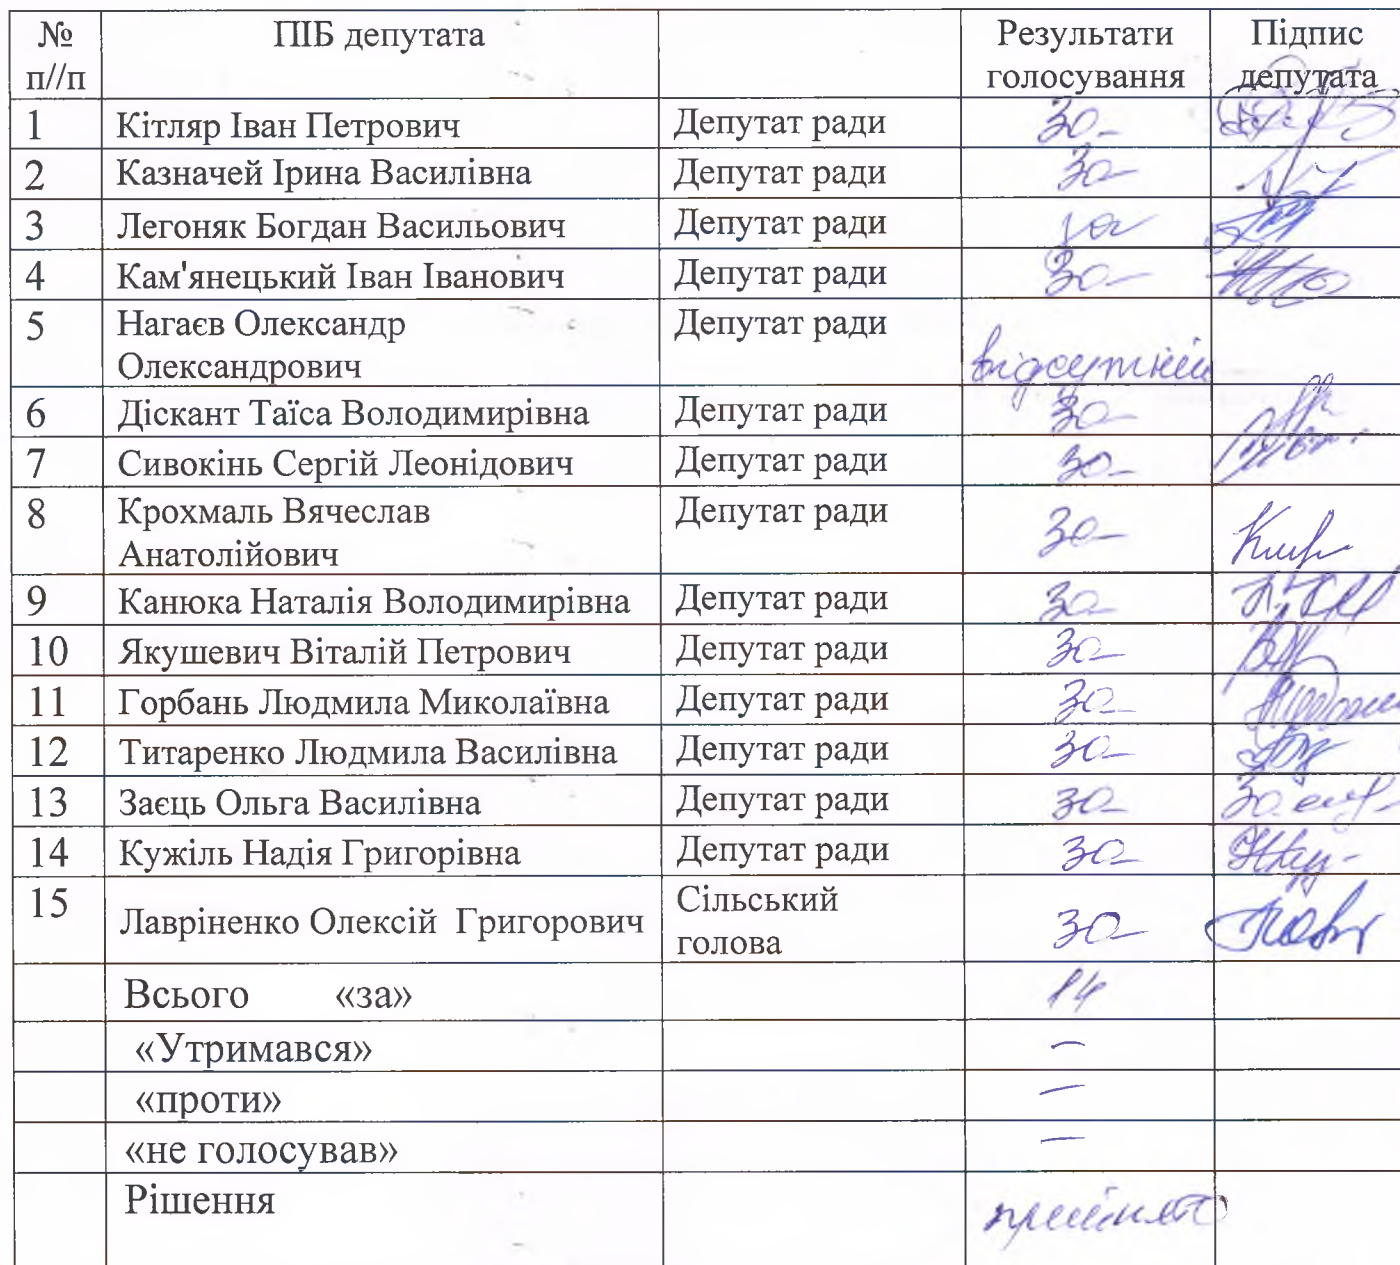 № п//п ПІБ депутата Результати голосування Підпис депутата
1 Кітляр Іван Петрович Депутат ради за
2 Казначей Ірина Василівна Депутат ради за
3 Легоняк Богдан Васильович Депутат ради за
4 Кам'янецький Іван Іванович Депутат ради за
5 Нагаєв Олександр Депутат ради
Олександрович відсутній
6 Діскант Таїса Володимирівна Депутат ради за
7 Сивокінь Сергій Леонідович Депутат ради за
8 Крохмаль Вячеслав Депутат ради
Анатолійович за
9 Канюка Наталія Володимирівна Депутат ради за
10 Якушевич Віталій Петрович Депутат ради за
11 Горбань Людмила Миколаївна Депутат ради за
12 Титаренко Людмила Василівна Депутат ради за
13 Заєць Ольга Василівна Депутат ради за
14 Кужіль Надія Григорівна Депутат ради за
15 Лавріненко Олексій Григорович Сільський голова за
Всього «за» 14
«Утримався» –
«проти» –
«не голосував» –
Рішення прийнято